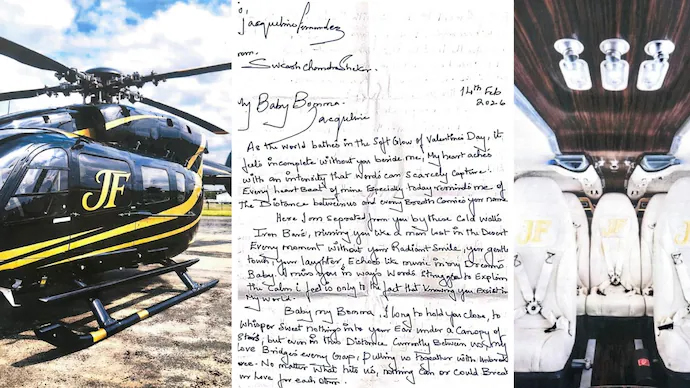 JF
To,
Jacqueline Fernandez
From,
Sukash Chandra Shekar.
14th Feb
2026
My Baby Bomma.
Jacqueline
As the world bathes in the Soft Glow of Valentines Day, it
feels incomplete without you beside me, My heart aches
with an intensity that words can scarcely capture.
Every heart Beat of mine Especially today reminds me of
The Distance between us and every Breath Carries your name
Here I am separated from you by these Cold walls
Iron Bars, missing you like a man lost in the Desert
Every moment without your Radiant Smile, your gentle
touch, your laughter, Echoes like music in my Dreams
Baby I miss you in ways Words Struggles to Explain
the Calm i feel is only to the fact that knowing you Exist in
My World.
Baby my Bomma, I long to hold you close, to
whisper Sweet nothings into your Ear under a Canopy of
Stars, but even in this Distance Currently Between us, my
love Bridges every Gap, pulling us together with
No matter what hits us, nothing Can or Could Break
our Love for each other.
JF
JF
JF